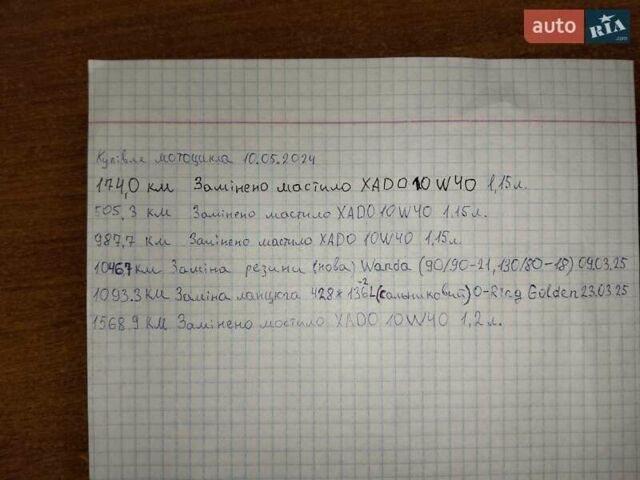 auto RIA .com
Купівля мотоцикла 10.05.2024
174,0 км Замінено мастило XADO 10W40 1,15л.
505,3 км Замінено мастило XADO 10W40 1.15л.
987,7 км Замінено мастило XADO 10W40 1,15л.
1046.7 км Заміна резини (нова) Wanda (90/90-21, 130/80-18) 09.03.25
1093.3 км Заміна ланцюга 428*136L-2 (сальниковий) O-Ring Golden 23.03.25
1568.9 км Замінено мастило XADO 10W40 1,2 л.